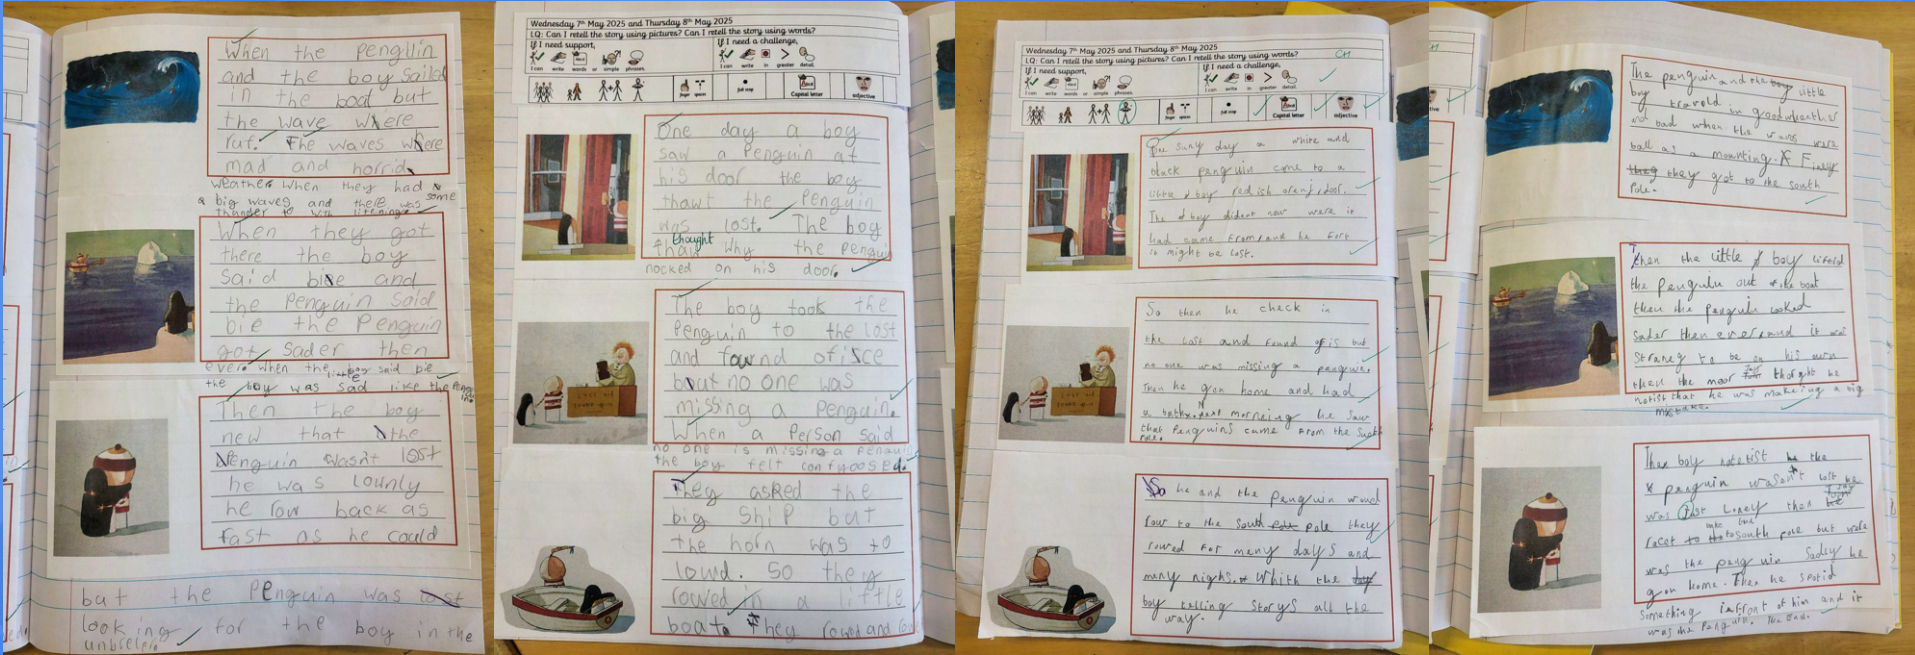 When the penguin
and the boy sailed
in the boat but
the wave where
rut. The waves where
mad and horrid
weather when they had some
a big waves and there was
thunder
When they got
there the boy
said bie and
the Penguin said
bie the Penguin
got sader then
ever. when the little boy said bie
the boy was sad like the
Then the boy
new that the
Penguin wasn't lost
he was lounly
he row back as
fast as he could
but the Penguin was lost
looking for the boy in the
unbrela.
Wednesday 7th May 2025 and Thursday 8th May 2025
I.Q: Can I retell the story using pictures? Can I retell the story using words?
If I need support, If I need a challenge,
I can write words or simple phrases. I can write in greater detail.
finger spaces full stop Capital letter adjective
One day a boy
saw a Penguin at
his door the boy
thawt the Penguin
was lost. The boy
thought
thawt Why the Penguin
nocked on his door.
The boy took the
Penguin to the lost
and found ofisce
but no one was
missing a Penguin.
When a Person said
no one is missing a
the boy felt confyoosed.
They asked the
big Ship but
the horn was to
lowd. So they
rowed in a little
boat. They rowed and
Wednesday 7th May 2025 and Thursday 8th May 2025
I.Q: Can I retell the story using pictures? Can I retell the story using words?
CH
If I need support, If I need a challenge,
I can write words or simple phrases. I can write in greater detail.
finger spaces full stop Capital letter adjective
One suny day a white and
black penguin came to a
little boy redish oranj door.
The boy dident now were it
had came from and he
it might be lost.
So then he check in
the Lost and found ofis but
no one was missing a penguin.
Then he gon home and had
a bath. Next morneing he saw
that Penguins came from the South
Pole.
So he and the penguin wond
row to the South pole they
rowed for meny days and
meny nighs. Whith the
boy telling storys all the
way.
The penguin and the little
boy traveld in good weather
bad when the waves were
as a mounting. Finaly
they got to the south
Pole.
Then the little boy liferd
the penguin out the boat
then the penguin looked
sader then ever and it was
straney to be on his own
then the mor thorght he
notist that he was makeing a big
mistake.
Then boy notetist the
penguin wasent lost he
was just loney then
racet to south pole but
was the penguin Sadly he
gon home. Then he spotid
something infront of him and it
was the Penguin. The End.